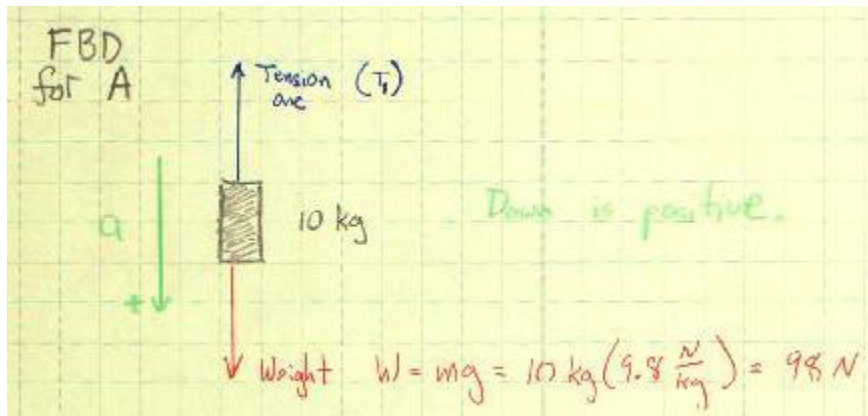 FBD
for A
Tension (T₁)
one
a
10 kg
Down is positive.
+
Weight W = mg = 10 kg (9.8 N/kg) = 98 N